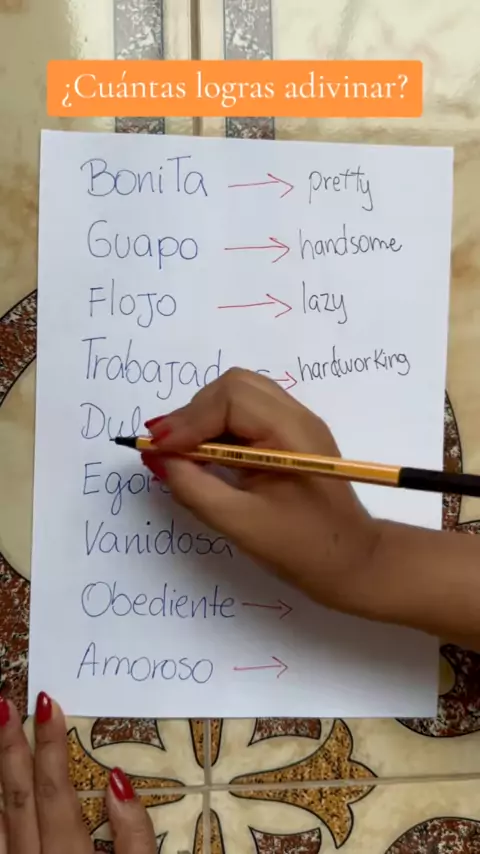 ¿Cuántas logras adivinar?
Bonita → pretty
Guapo → handsome
Flojo → lazy
→ hardworking
Vanidosa
Obediente →
Amoroso →